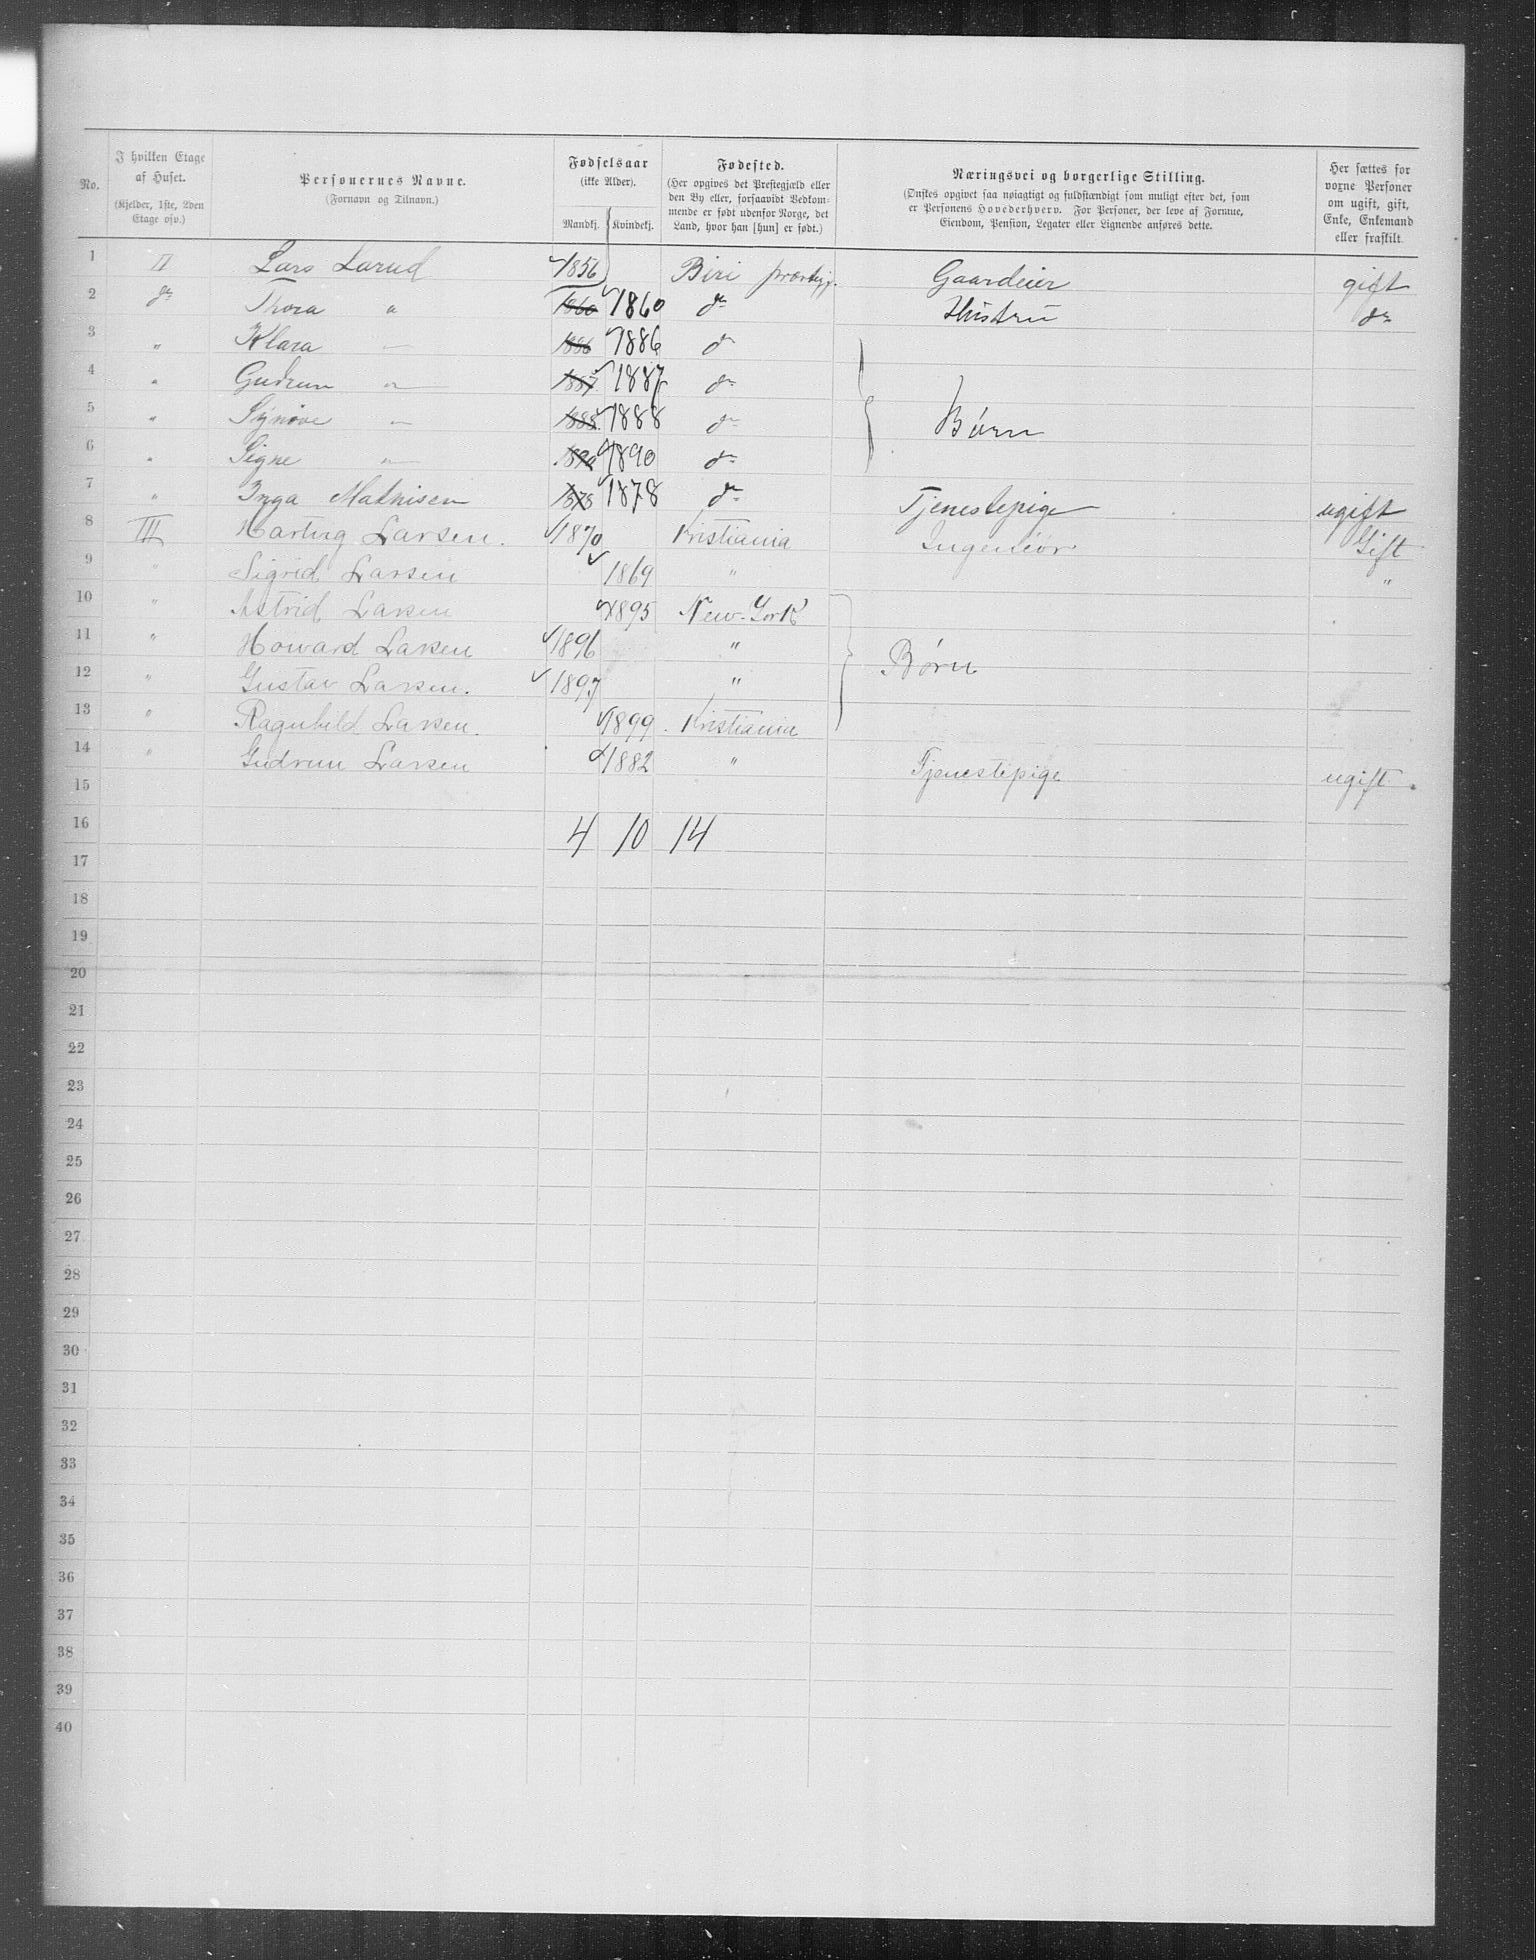 No. | I hvilken Etage af Huset. (Kjelder, 1ste, 2den Etage osv.) | Personernes Navne. (Fornavn og Tilnavn.) | Fødselsaar (ikke Alder). Mandkj. | Kvindekj. | Fødested. (Her opgives det Prestegjæld eller den By eller, forsaavidt Vedkommende er født udenfor Norge, det Land, hvor han [hun] er født.) | Næringsvei og borgerlige Stilling. (Ønskes opgivet saa nøiagtigt og fuldstændigt som muligt efter det, som er Personens Hovederhverv. For Personer, der leve af Formue, Eiendom, Pension, Legater eller Lignende anføres dette.) | Her sættes for voxne Personer om ugift, gift, Enke, Enkemand eller fraskilt.
1 II Lars Larud 1856 Biri Gaardeier gift
2 do Thora " 1860 1860 do Hustru do
3 " Klara — 1886 1886 do
4 " Gudrun " 1887 1887 do
5 " Synøve " 1888 1888 do Børn
6 " Signe " 1890 1890 do
7 " Inga Mathisen 1878 1878 do Tjenestepige ugift
8 III Hartvig Larsen. 1870 Kristiania Ingeniør Gift
9 " Sigrid Larsen 1869 " "
10 " Astrid Larsen 1895 New-York
11 " Howard Larsen 1896 " Børn
12 " Gustav Larsen. 1897 "
13 " Ragnhild Larsen. 1899 Kristiania
14 " Gudrun Larsen 1882 " Tjenestepige ugift.
15
16 4 10 14
17
18
19
20
21
22
23
24
25
26
27
28
29
30
31
32
33
34
35
36
37
38
39
40